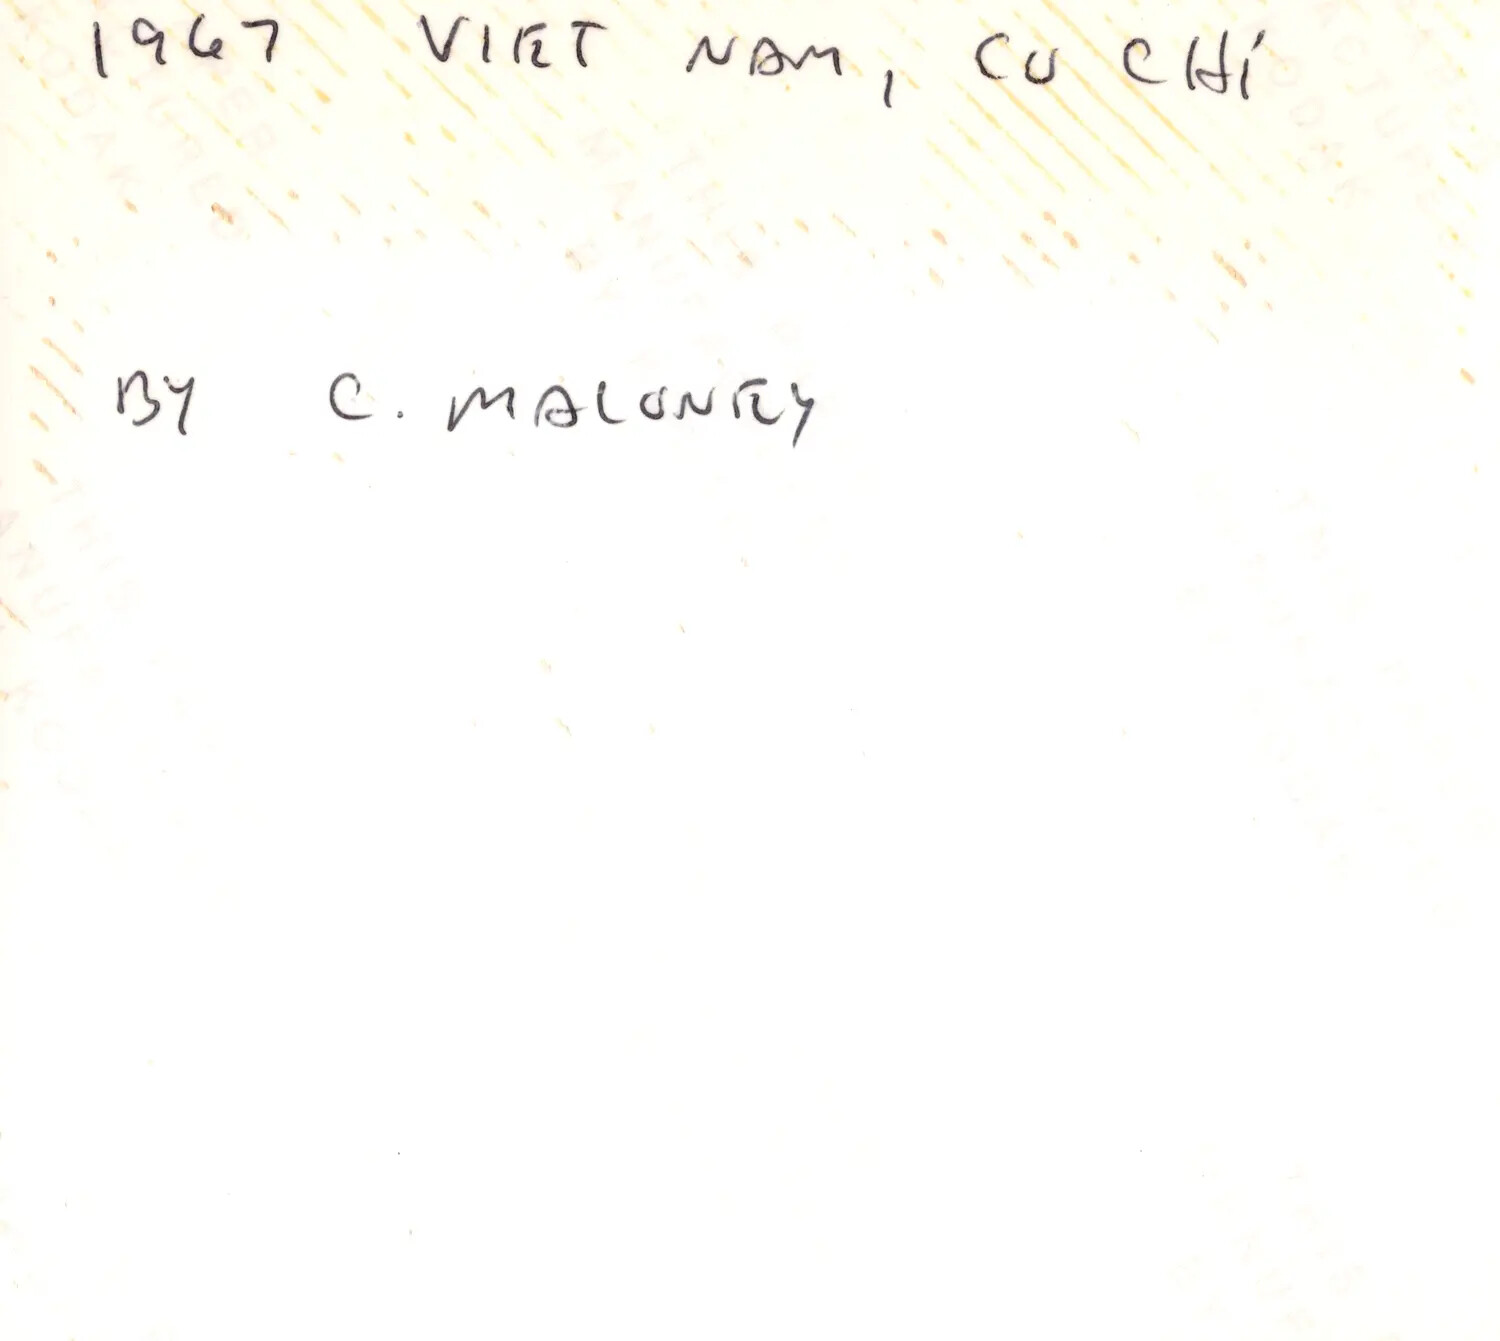 1967 VIET NAM, CU CHI
BY C. MALONEY